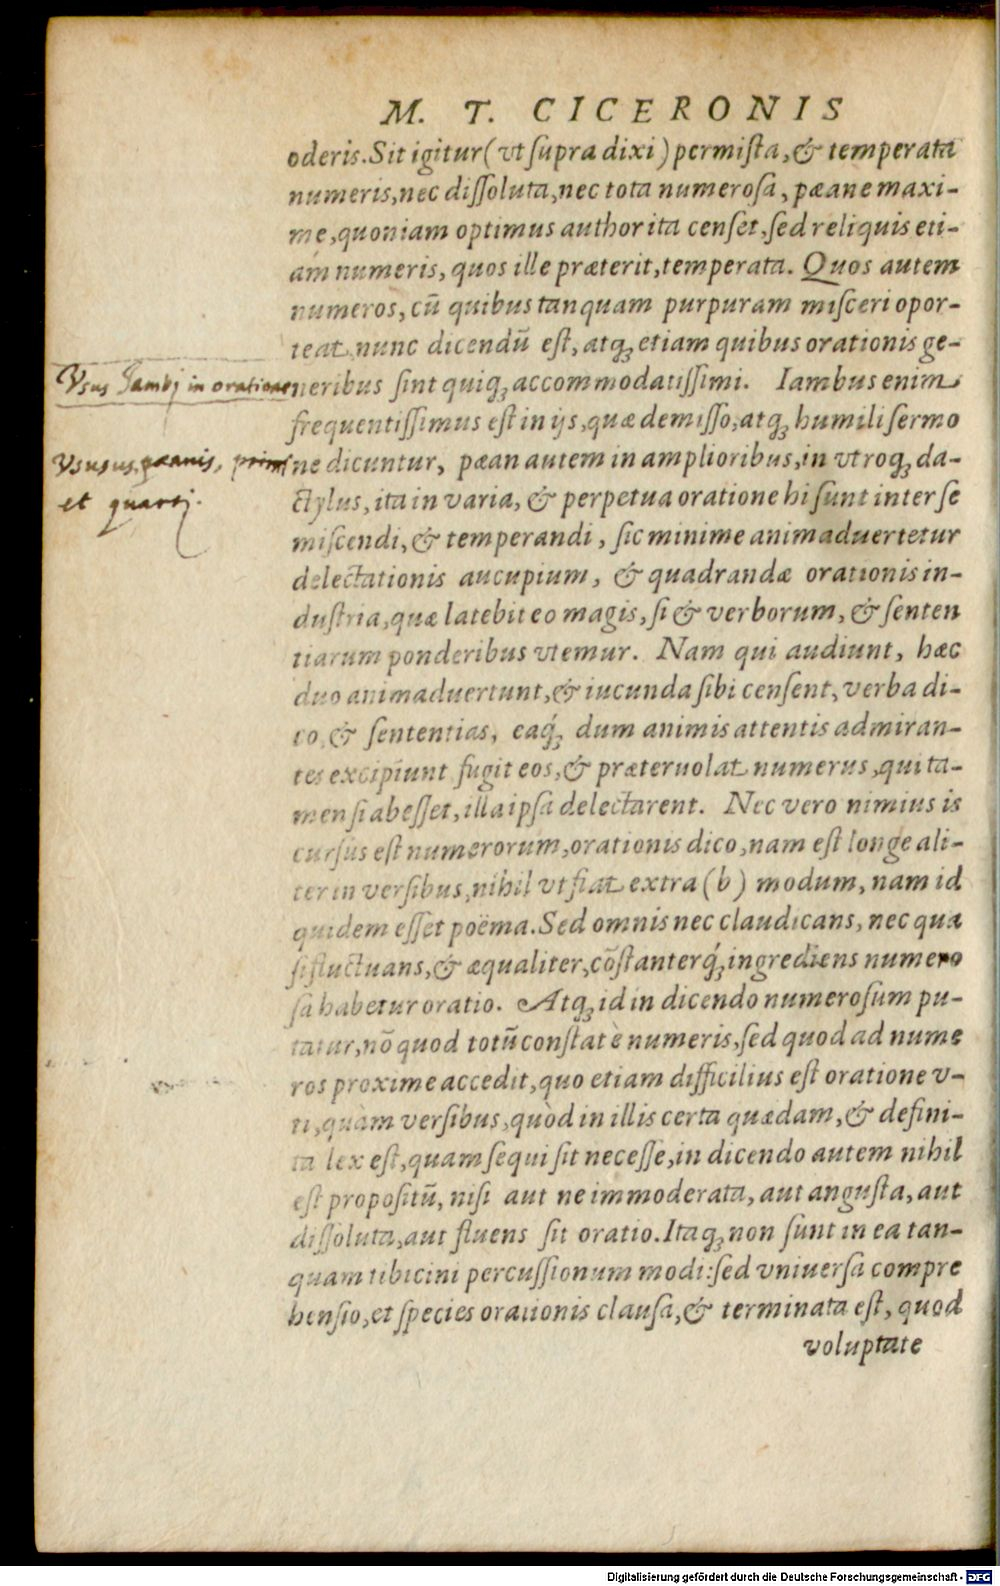 M. T. CICERONIS
oderis. Sit igitur (vt supra dixi) permista, & temperata
numeris, nec dissoluta, nec tota numerosa, pæane maxi-
me, quoniam optimus author ita censet, sed reliquis eti-
am numeris, quos ille præterit, temperata. Quos autem
numeros, cū quibus tanquam purpuram misceri opor-
teat, nunc dicendū est, atq; etiam quibus orationis ge-
Vsus Iambj in oratione
neribus sint quiq; accommodatissimi. Iambus enim
frequentissimus est in ijs, quæ demisso, atq; humili sermo
Vsus pæanis, primi
ne dicuntur, pæan autem in amplioribus, in vtroq; da-
et quartj.
ctylus, ita in varia, & perpetua oratione hi sunt inter se
miscendi, & temperandi, sic minime animaduertetur
delectationis aucupium, & quadrandæ orationis in-
dustria, quæ latebit eo magis, si & verborum, & senten
tiarum ponderibus vtemur. Nam qui audiunt, hæc
duo animaduertunt, & iucunda sibi censent, verba di-
co, & sententias, eaq́; dum animis attentis admiran-
tes excipiunt fugit eos, & præteruolat numerus, qui ta-
men si abesset, illa ipsa delectarent. Nec vero nimius is
cursus est numerorum, orationis dico, nam est longe ali-
ter in versibus, nihil vt fiat extra (b) modum, nam id
quidem esset poëma. Sed omnis nec claudicans, nec qua
si fluctuans, & æqualiter, cōstanterq́; ingrediens numero
sa habetur oratio. Atq; id in dicendo numerosum pu-
tatur, nō quod totū constat è numeris, sed quod ad nume
ros proxime accedit, quo etiam difficilius est oratione v-
ti, quàm versibus, quòd in illis certa quædam, & defini-
ta lex est, quam sequi sit necesse, in dicendo autem nihil
est propositū, nisi aut ne immoderata, aut angusta, aut
dissoluta, aut fluens sit oratio. Itaq; non sunt in ea tan-
quam tibicini percussionum modi: sed vniuersa compre
hensio, et species orationis clausa, & terminata est, quod
voluptate
Digitalisierung gefördert durch die Deutsche Forschungsgemeinschaft - DFG